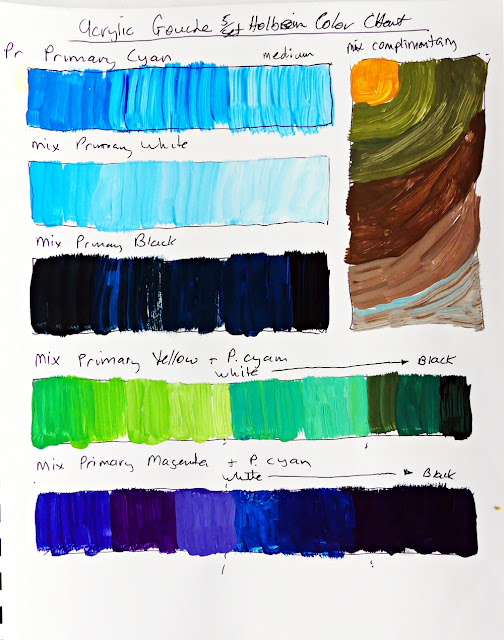 Acrylic Gouche 5/set Holbein Color Chart
Pr Primary Cyan medium
mix complimentary
mix Primary White
mix Primary Black
Mix Primary Yellow + P. cyan
white → Black
Mix Primary Magenta + P. cyan
white → Black